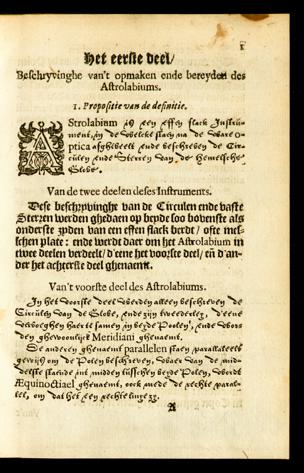 1
Het eerste deel/
Beschryvinghe van't opmaken ende bereyden des
Astrolabiums.
1. Propositie van de definitie.
AStrolabium is een effen slack Instru-
ment, in de welcke staen na de ware o-
ptica afghebeelt ende beschreven de Cir-
culen ende Sterren van de Hemelsche
Globe.
Van de twee deelen deses Instruments.
Dese beschzyvingh van de Circulen ende vaste
Sterren werden ghedaen op beyde soo bovenste als
onderste zyden van een effen slack berdt / ofte mes-
schen plate: ende werdt daer om het Astrolabium in
twee deelen verdeelt / d'eene het voorste deel / eñ d'an-
der het achterste deel ghenaemt.
Van't voorste deel des Astrolabiums.
In het voorste deel werden alleen beschreven de
Circulen van de Globe, ende zijn tweederley, d'eene
verkoeghen haer te samen in beyde Polen, ende worden
den ghewoonlijck Meridiani ghenaemt.
De anderen ghenaemt parallelen staen parallaleels
gewijs om de Polen beschreven, waer van de mid-
delste staende int midden tusschen beyde Polen, wordt
Æquinoctiael ghenaemt, oock mede de rechte paral-
lel, om dat het een rechte linge is.
A